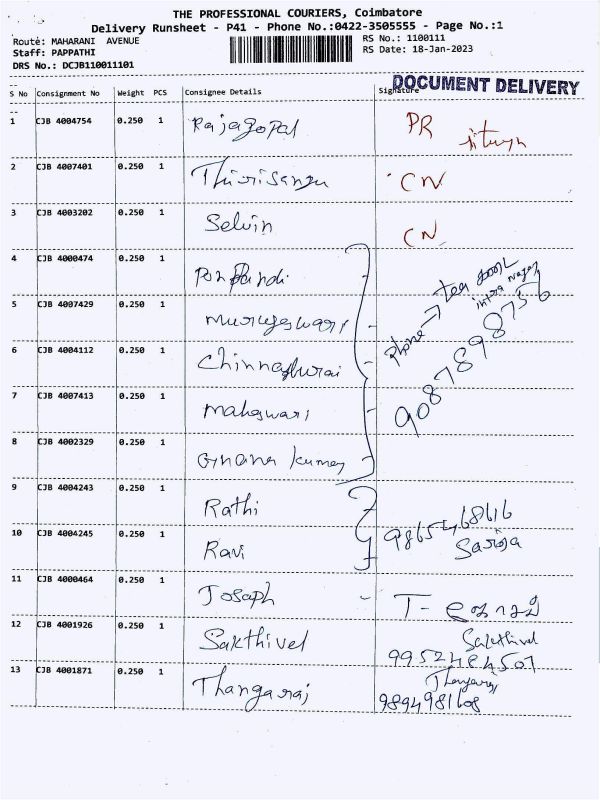 THE PROFESSIONAL COURIERS, Coimbatore
Delivery Runsheet - P41 - Phone No.:0422-3505555 - Page No.:1
Route: MAHARANI AVENUE
RS No.: 1100111
Staff: PAPPATHI
RS Date: 18-Jan-2023
DRS No.: DCJB110011101
DOCUMENT DELIVERY
S No Consignment No Weight PCS Consignee Details Signature
1 CJB 4004754 0.250 1 Rajagopal PR
2 CJB 4007401 0.250 1 Thirisangu CN
3 CJB 4003202 0.250 1 Selvin CN
4 CJB 4000474 0.250 1 Ponpandi
Phone → tea
5 CJB 4007429 0.250 1 Murugeswari
9087898756
6 CJB 4004112 0.250 1 Chinnadurai
7 CJB 4007413 0.250 1 Maheswari
8 CJB 4002329 0.250 1 Gnana kumar
9 CJB 4004243 0.250 1 Rathi
10 CJB 4004245 0.250 1 Ravi Saroja
11 CJB 4000464 0.250 1 Joseph
12 CJB 4001926 0.250 1 Sakthivel Sakthivel
13 CJB 4001871 0.250 1 Thangaraj Thangaraj